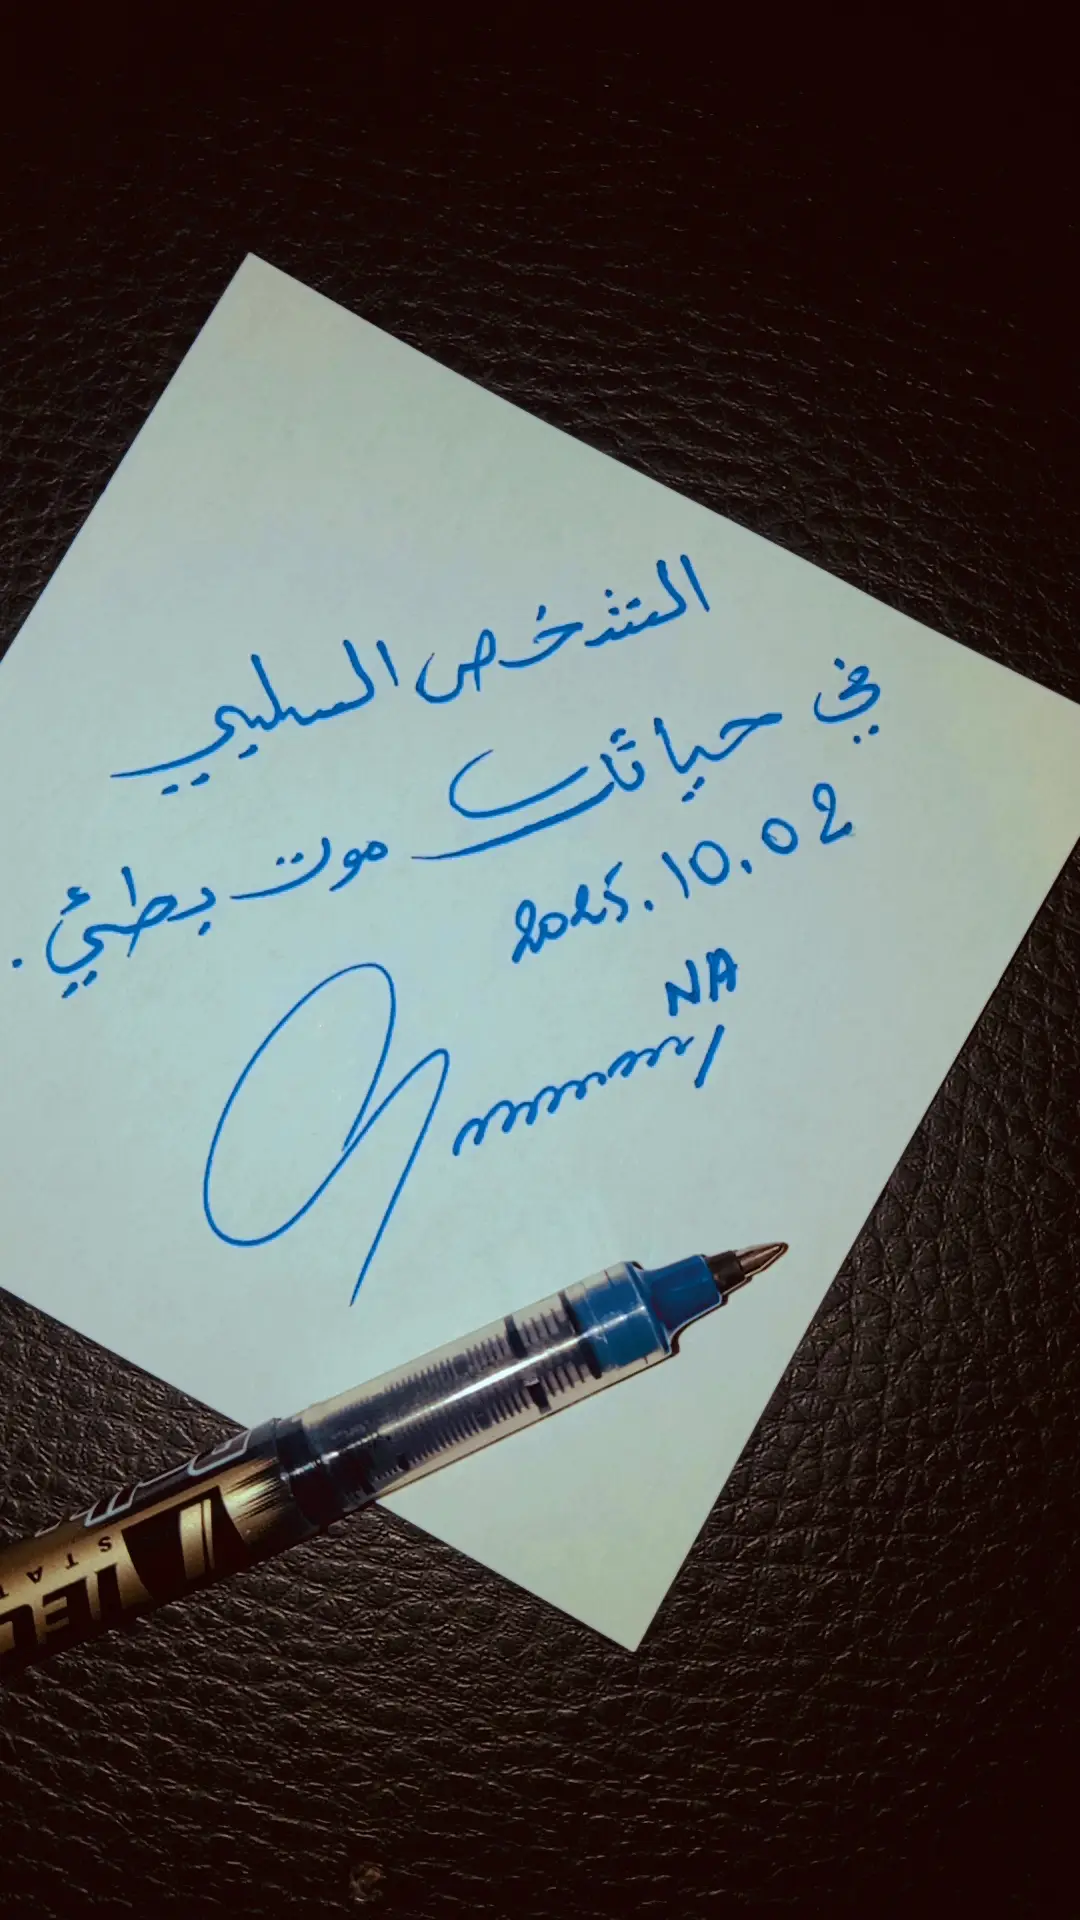 الشخص السلبي
في حياتك موت بطيئ.
2025.10.02
NA